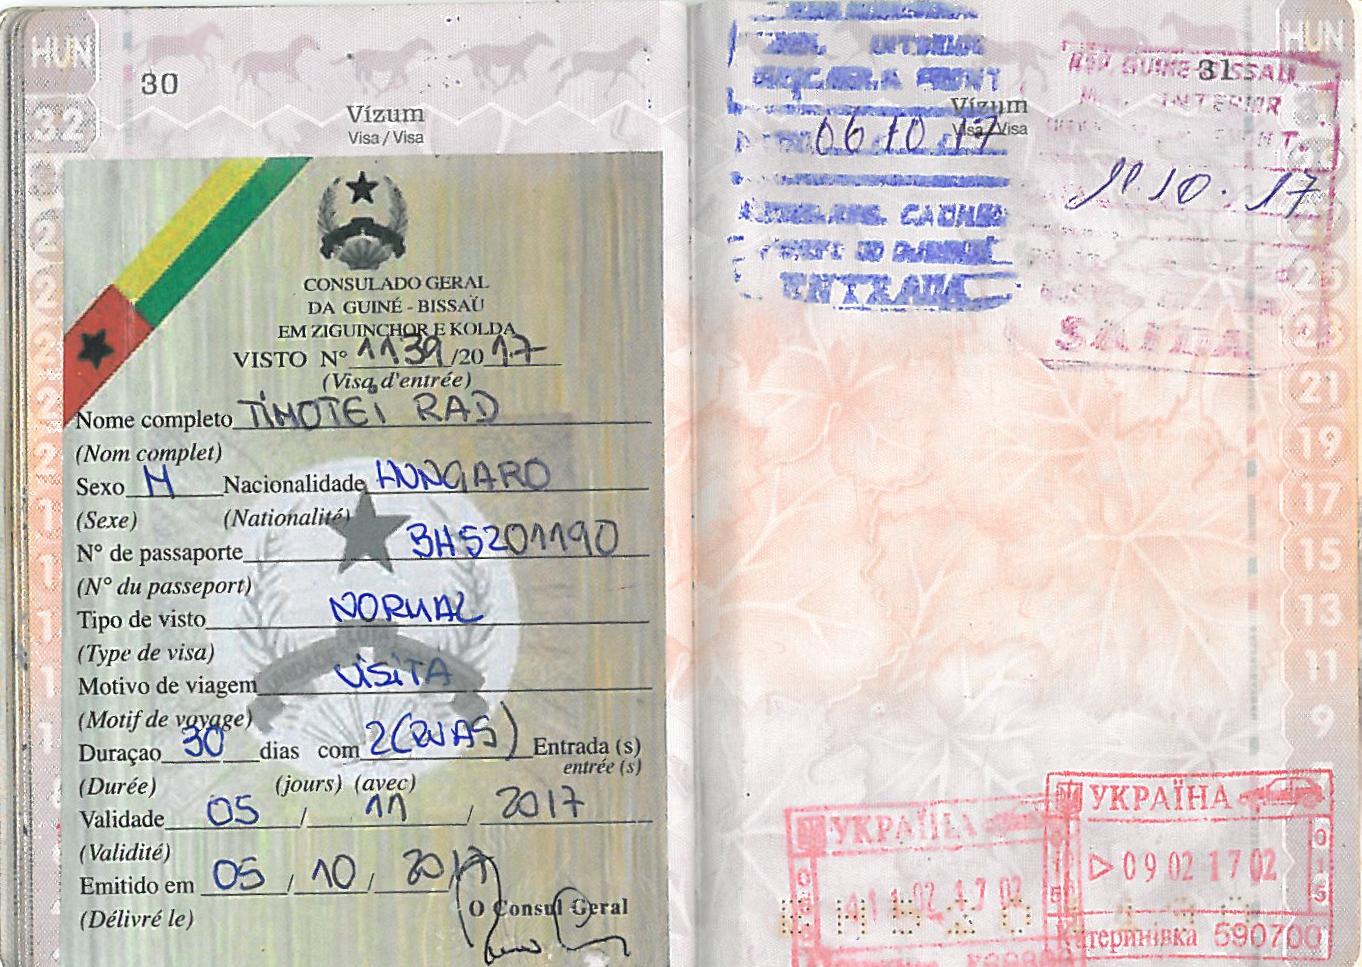 HUN
30
32
Vízum
Visa / Visa
CONSULADO GERAL
DA GUINÉ - BISSAÜ
EM ZIGUINCHOR E KOLDA
VISTO N° 1139/20 17
(Visa d'entrée)
Nome completo TIMOTEI RAD
(Nom complet)
Sexo M Nacionalidade HUNGARO
(Sexe) (Nationalité)
N° de passaporte BH5201190
(N° du passeport)
Tipo de visto NORMAL
(Type de visa)
Motivo de viagem VISITA
(Motif de voyage)
Duraçao 30 dias com 2 (DUAS) Entrada (s)
entrée (s)
(Durée) (jours) (avec)
Validade 05 / 11 / 2017
(Validité)
Emitido em 05 / 10 / 2017
(Délivré le)
O Consul Geral
HUN
31
Vízum
Visa / Visa
06 10 17
ENTRADA
REP. GUINE-BISSAU
INTERIOR
10. 17
SAIDA
21
19
17
15
13
11
9
УКРАЇНА
11 02 17 02
УКРАЇНА
09 02 17 02
Катеринівка 590700